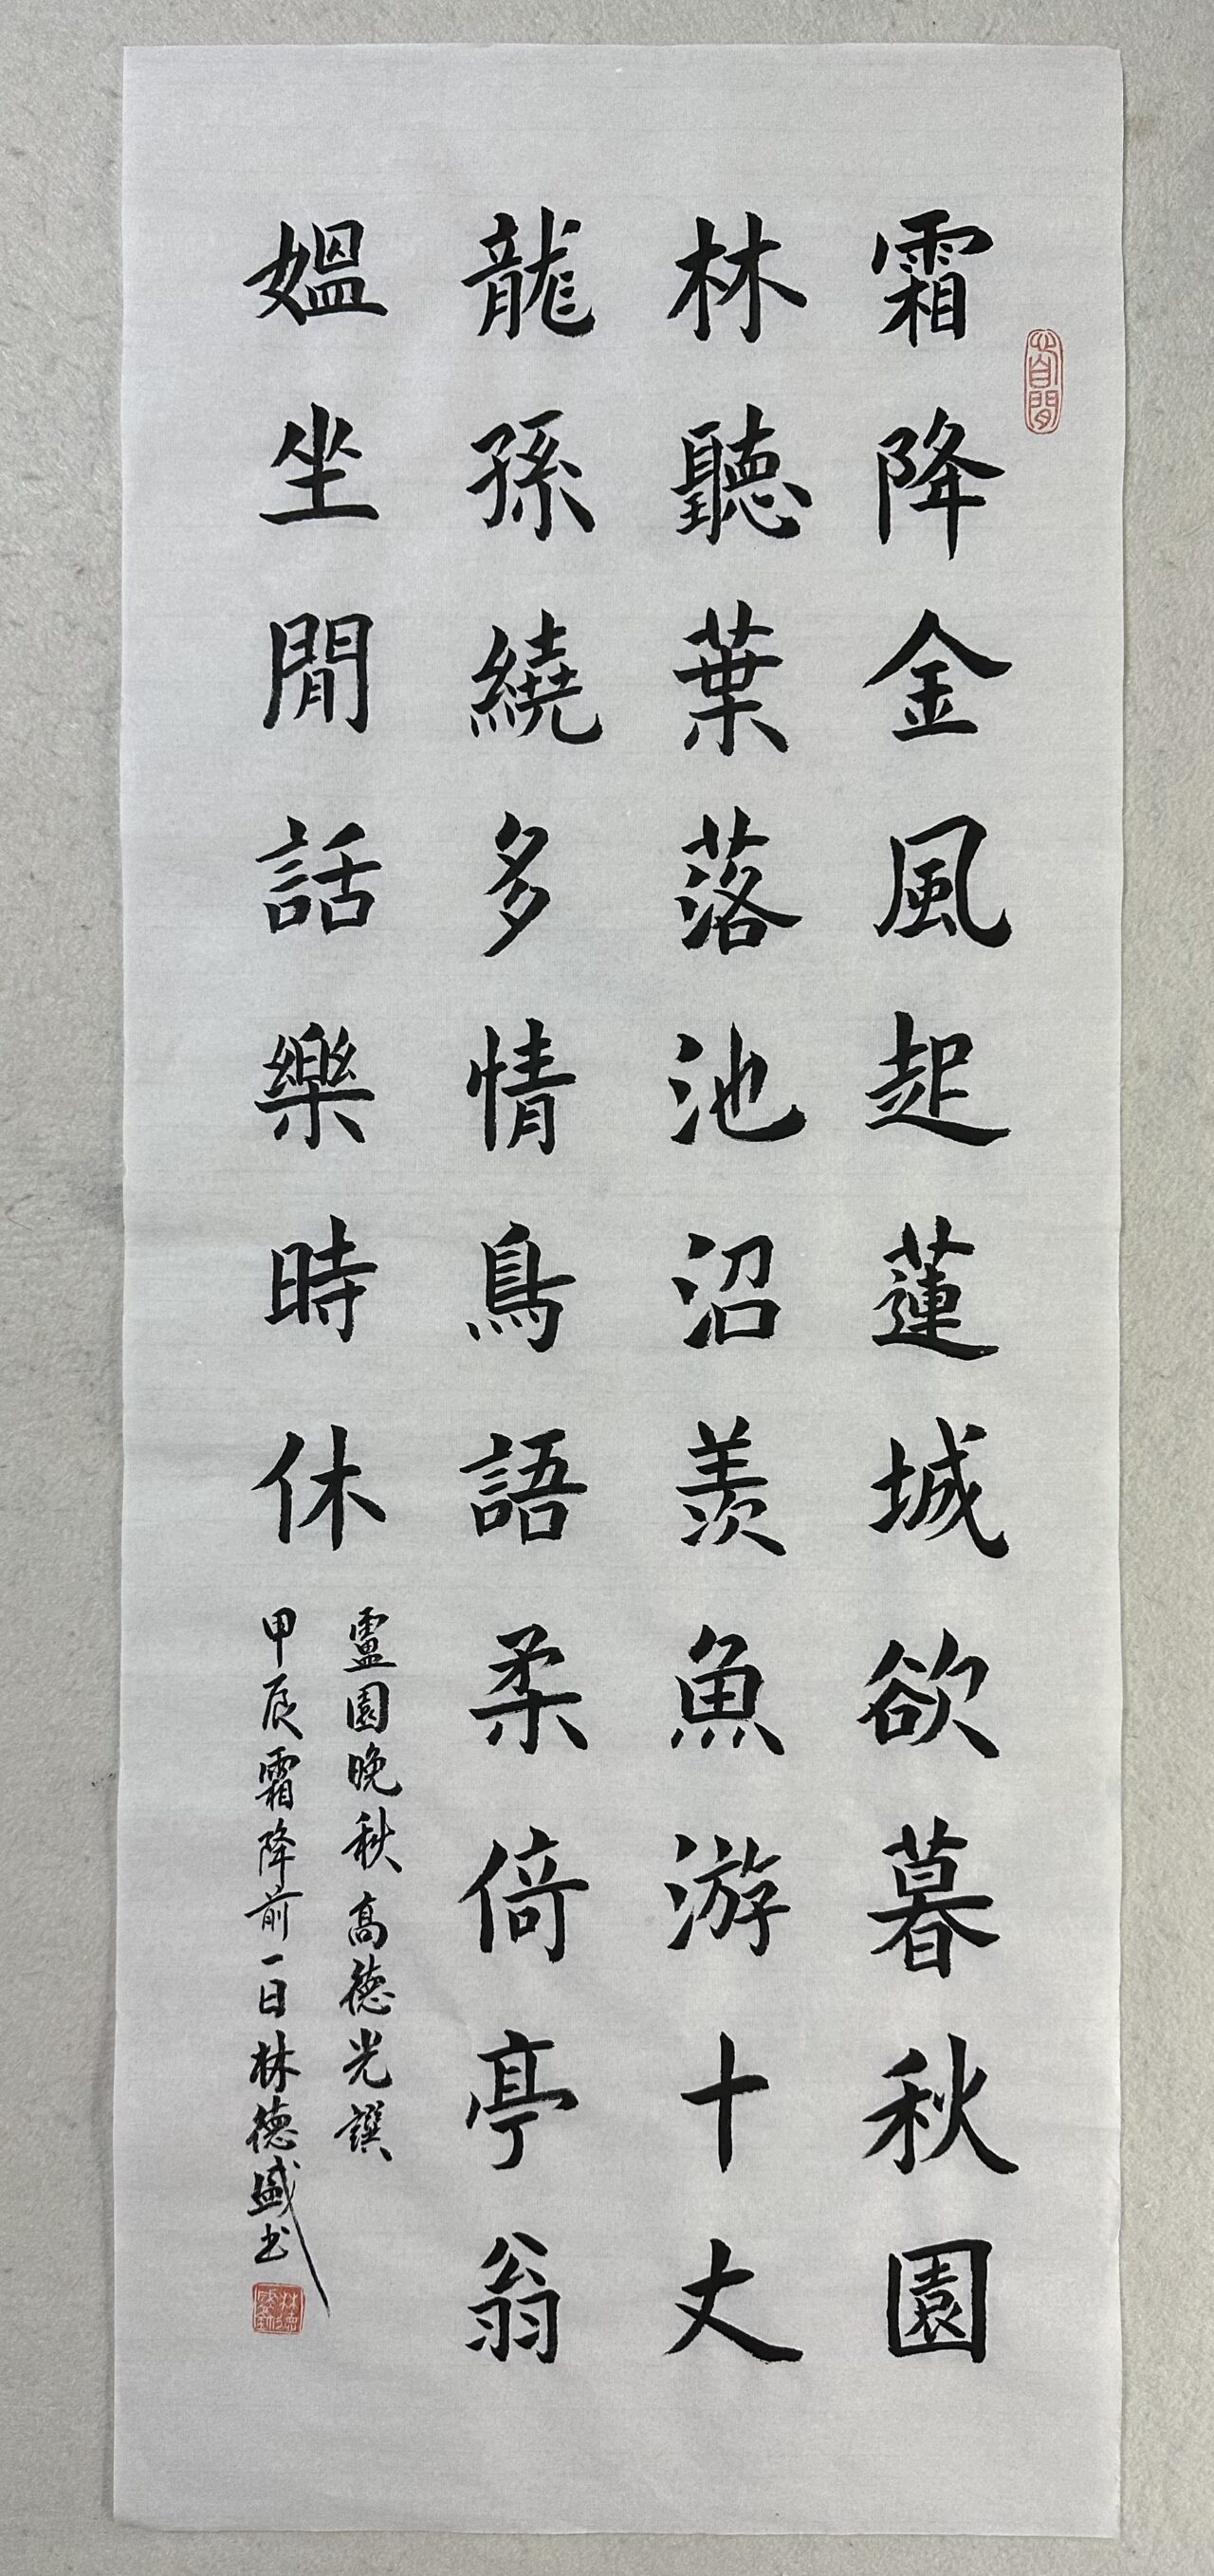 霜降金風起蓮城欲暮秋園
林聽葉落池沼羨魚游十丈
龍孫繞多情鳥語柔倚亭翁
媼坐閒話樂時休
靈園晚秋高德光譔
甲辰霜降前一日林德盛书